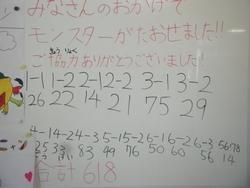 みなさんのおかげで
モンスターがたおせました!!
きょうりょく
ご協力ありがとうございました!
1-1 1-2 2-1 2-2 3-1 3-2
26 22 14 21 75 29
4-1 4-2 4-3 5-1 5-2 6-1 6-2 6-3 5678
25 33 83 49 76 50 60 56 14
合計618